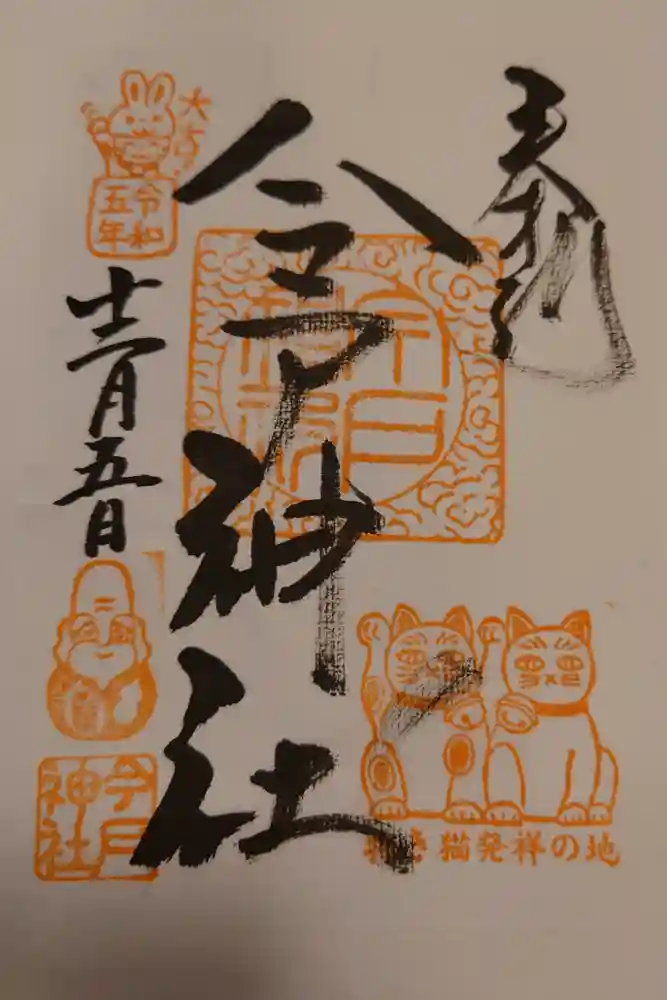 奉拝
今戸神社
今戸
神社
招き猫発祥の地
大吉
令和
五年
十二月五日
今戸
神社